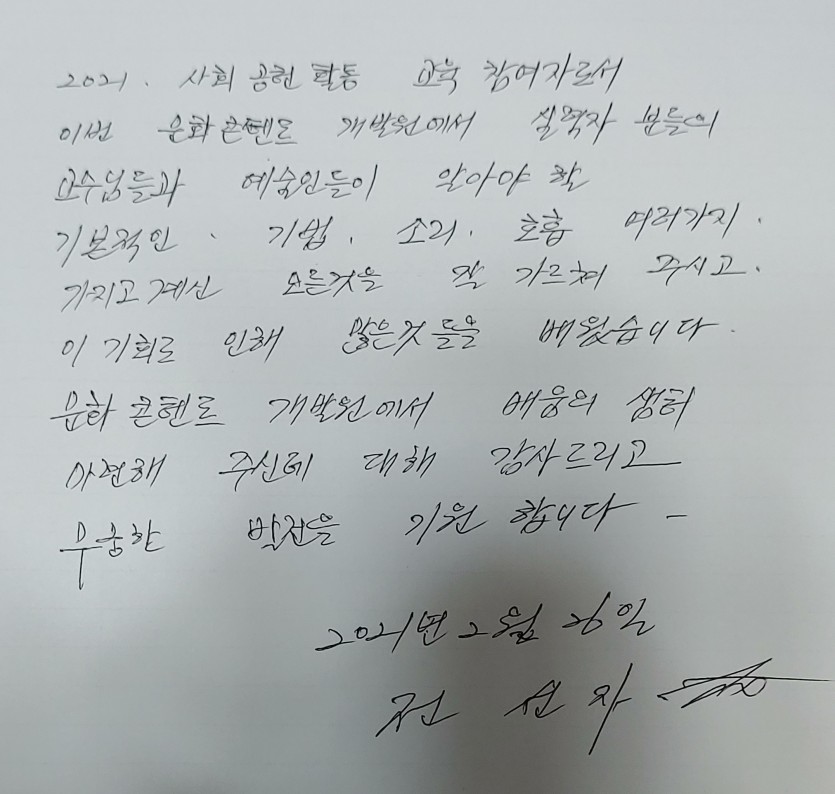 2021. 사회 공헌 활동 교육 참여자로서
이번 문화콘텐트 개발원에서 실력자 분들의
교수님들과 예술인들이 알아야 할
기본적인. 기법. 소리. 호흡 여러가지.
가지고 계신 모든것을 잘 가르쳐 주시고.
이 기회로 인해 많은것 들을 배웠습니다.
문화콘텐트 개발원에서 배움의
마련해 주신데 대해 감사드리고
무궁한 발전을 기원 합니다 -
2021년 2월 26일
전 선 자